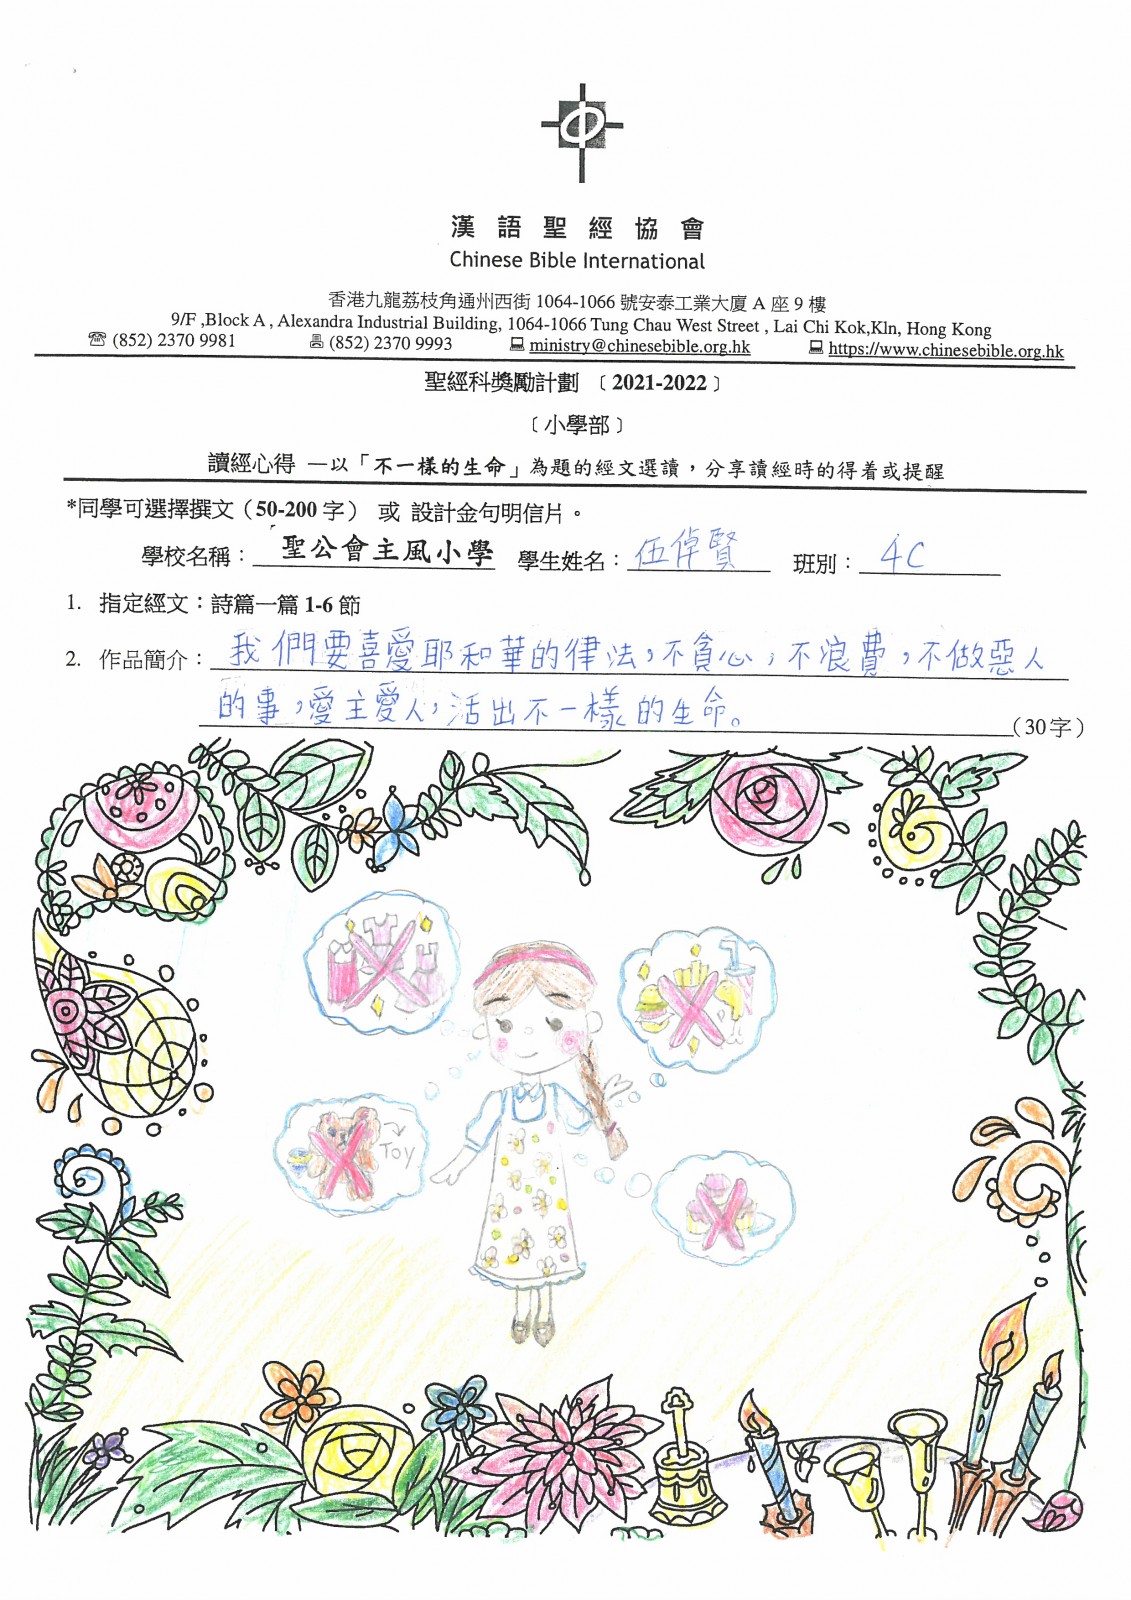 漢語聖經協會
Chinese Bible International
香港九龍荔枝角通州西街 1064-1066 號安泰工業大廈 A 座 9 樓
9/F ,Block A , Alexandra Industrial Building, 1064-1066 Tung Chau West Street , Lai Chi Kok,Kln, Hong Kong
(852) 2370 9981 (852) 2370 9993 ministry@chinesebible.org.hk https://www.chinesebible.org.hk
聖經科獎勵計劃 〔 2021-2022 〕
〔 小學部 〕
讀經心得 —以「不一樣的生命」為題的經文選讀，分享讀經時的得着或提醒
*同學可選擇撰文（50-200 字） 或 設計金句明信片。
學校名稱：聖公會主風小學 學生姓名：伍倬賢 班別：4C
1. 指定經文：詩篇一篇 1-6 節
2. 作品簡介：我們要喜愛耶和華的律法，不貪心，不浪費，不做惡人
的事，愛主愛人，活出不一樣的生命。（30 字）
Toy